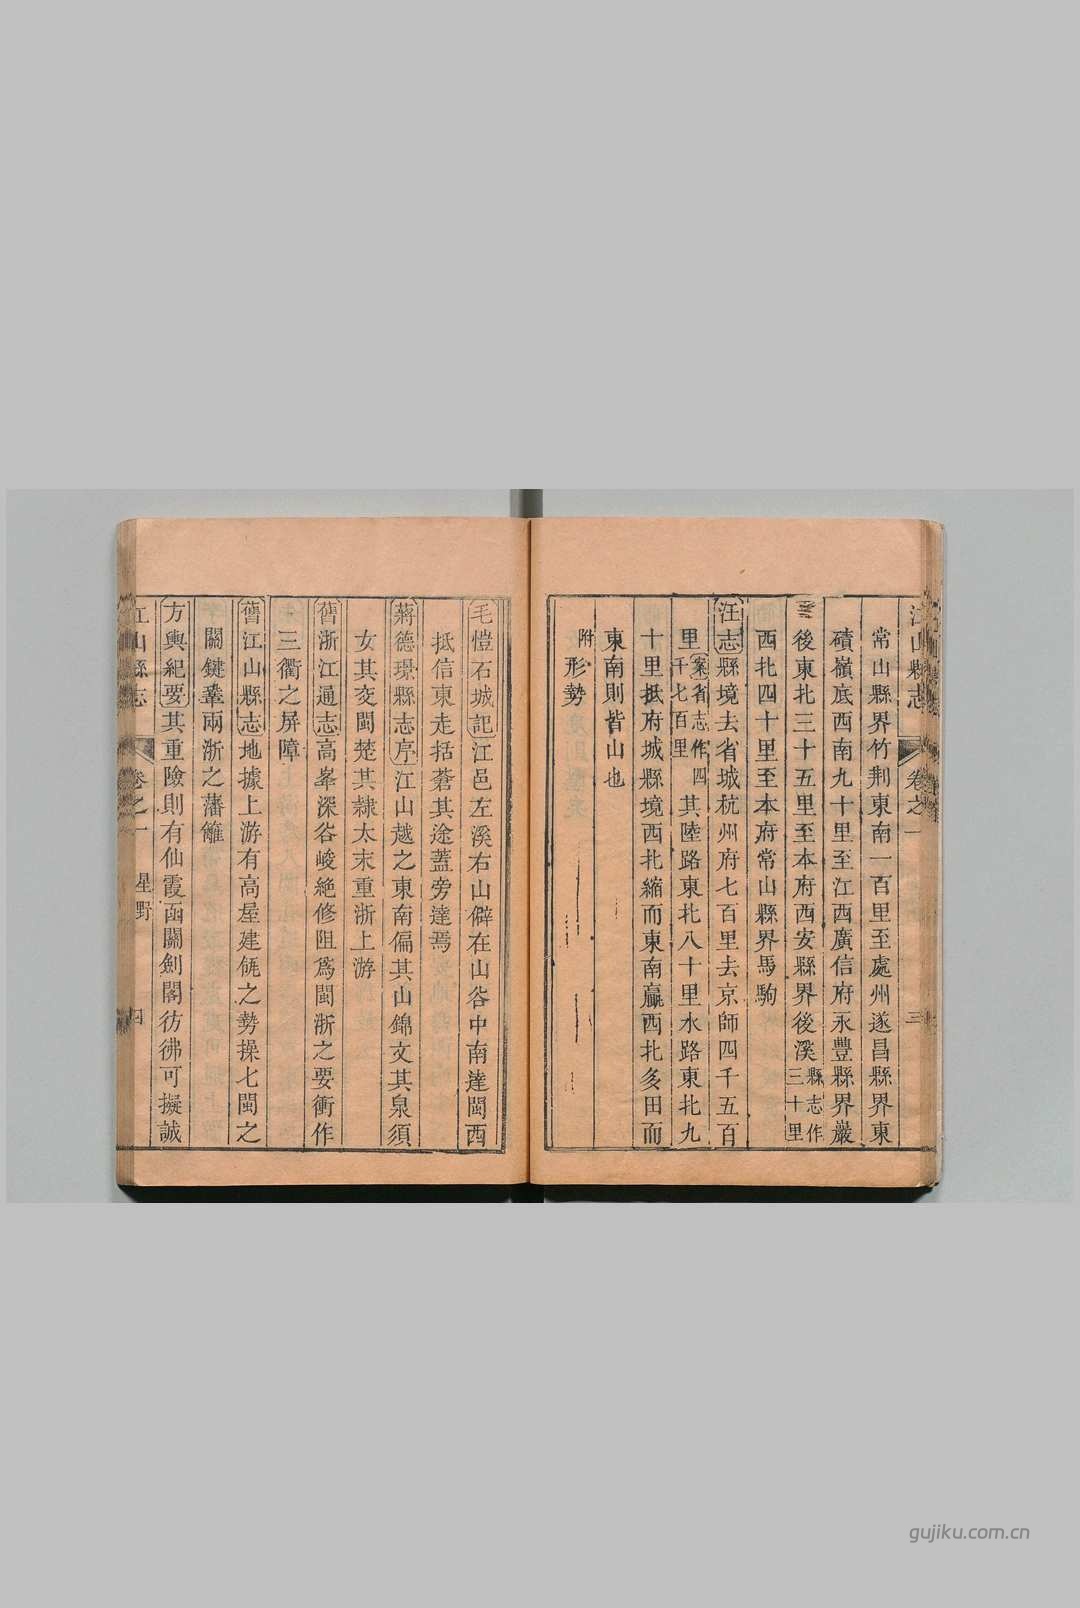 江山縣志
卷之一
三
常山縣界竹荆東南一百里至處州遂昌縣界東
磧嶺底西南九十里至江西廣信府永豐縣界巖
後東北三十五里至本府西安縣界後溪縣志作三十里
西北四十里至本府常山縣界馬駒
汪志縣境去省城杭州府七百里去京師四千五百
里案省志作四千七百里其陸路東北八十里水路東北九
十里抵府城縣境西北縮而東南贏西北多田而
東南則皆山也
附形勢
毛愷石城記江邑左溪右山僻在山谷中南達閩西
抵信東走括蒼其途蓋旁達焉
蔣德璟縣志序江山越之東南偏其山錦文其泉須
女其交閩楚其隸太末重浙上游
舊浙江通志高峯深谷峻絶修阻爲閩浙之要衝作
三衢之屏障
舊江山縣志地據上游有高屋建瓴之勢操七閩之
關鍵鞏兩浙之藩籬
方輿紀要其重險則有仙霞函關劍閣彷彿可擬誠
江山縣志
卷之一
星野
四
gujiku.com.cn